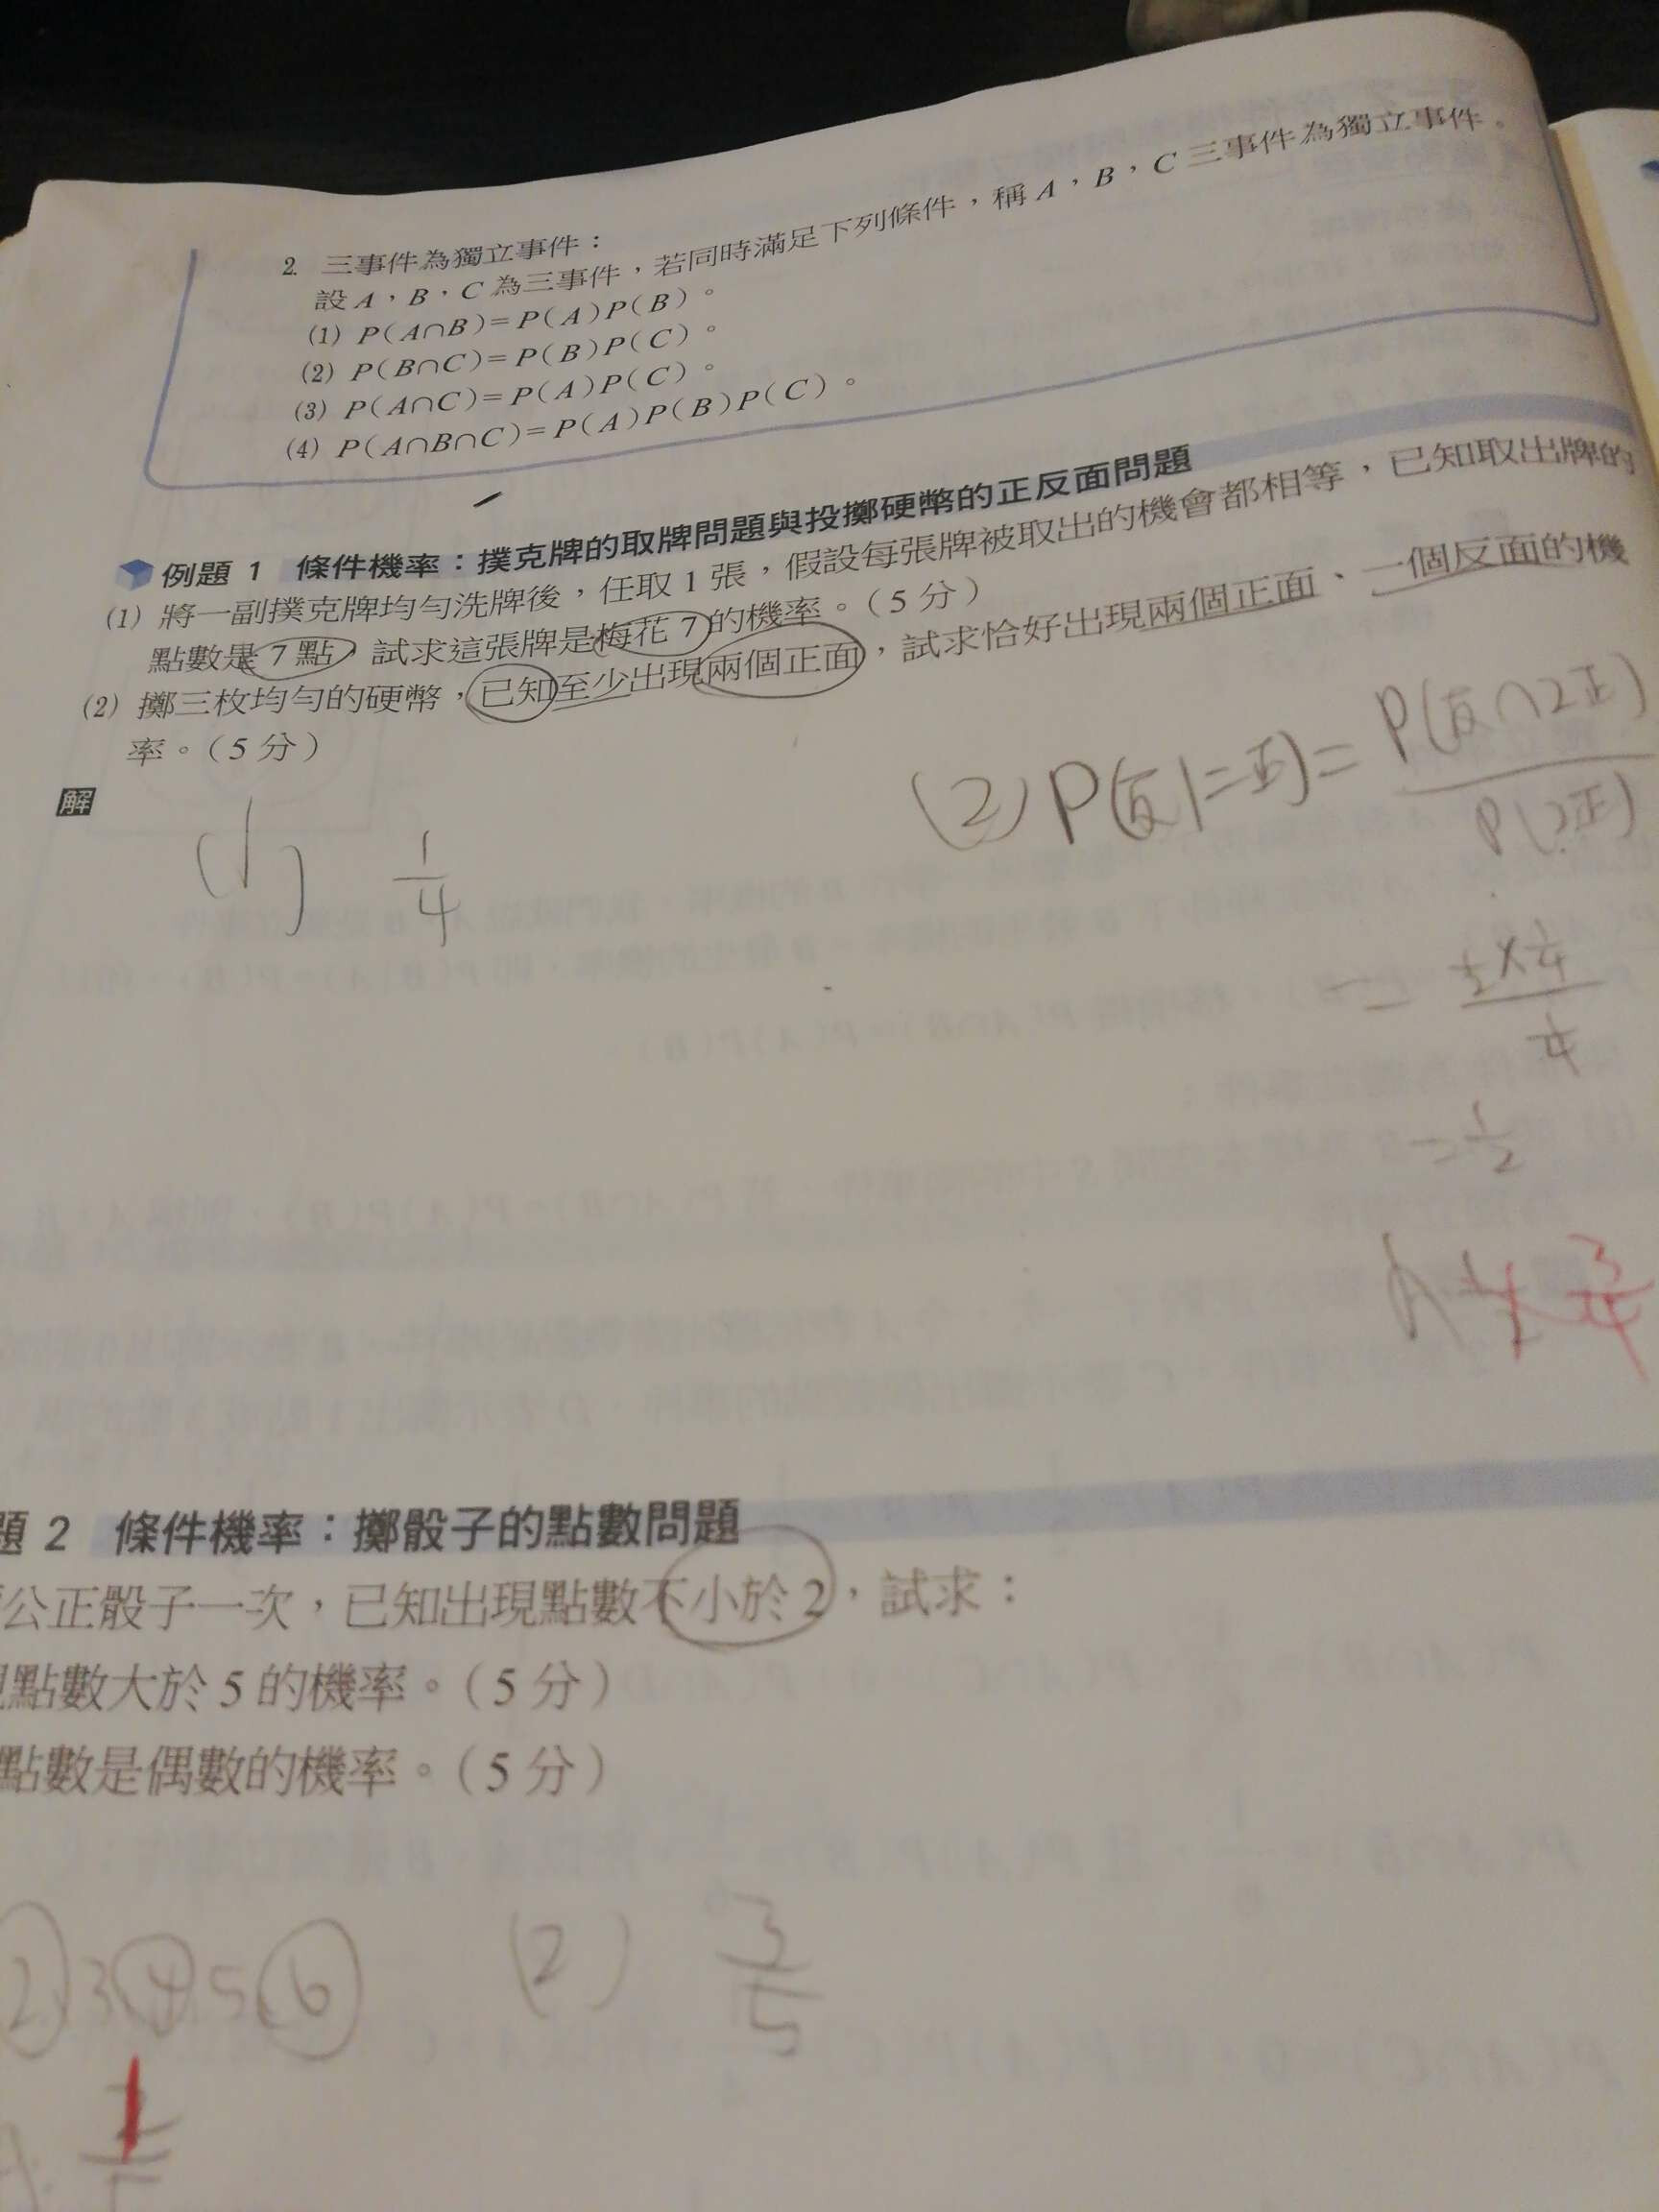 2. 三事件為獨立事件：
設 A，B，C 為三事件，若同時滿足下列條件，稱 A，B，C 三事件為獨立事件。
(1) P(A∩B)=P(A)P(B)。
(2) P(B∩C)=P(B)P(C)。
(3) P(A∩C)=P(A)P(C)。
(4) P(A∩B∩C)=P(A)P(B)P(C)。
例題 1 條件機率：撲克牌的取牌問題與投擲硬幣的正反面問題
(1) 將一副撲克牌均勻洗牌後，任取 1 張，假設每張牌被取出的機會都相等，已知取出牌的
點數是 7 點，試求這張牌是梅花 7 的機率。（5 分）
(2) 擲三枚均勻的硬幣，已知至少出現兩個正面，試求恰好出現兩個正面、一個反面的機
率。（5 分）
解
(1) 1/4
(2) P(反|二正)= P(反∩2正)/P(2正)
= (1/2×1/4)/(1/4)
=1/2
A: 1/2 3/4
題 2 條件機率：擲骰子的點數問題
公正骰子一次，已知出現點數不小於 2，試求：
點數大於 5 的機率。（5 分）
點數是偶數的機率。（5 分）
2.3.4.5.6
(2) 3/5